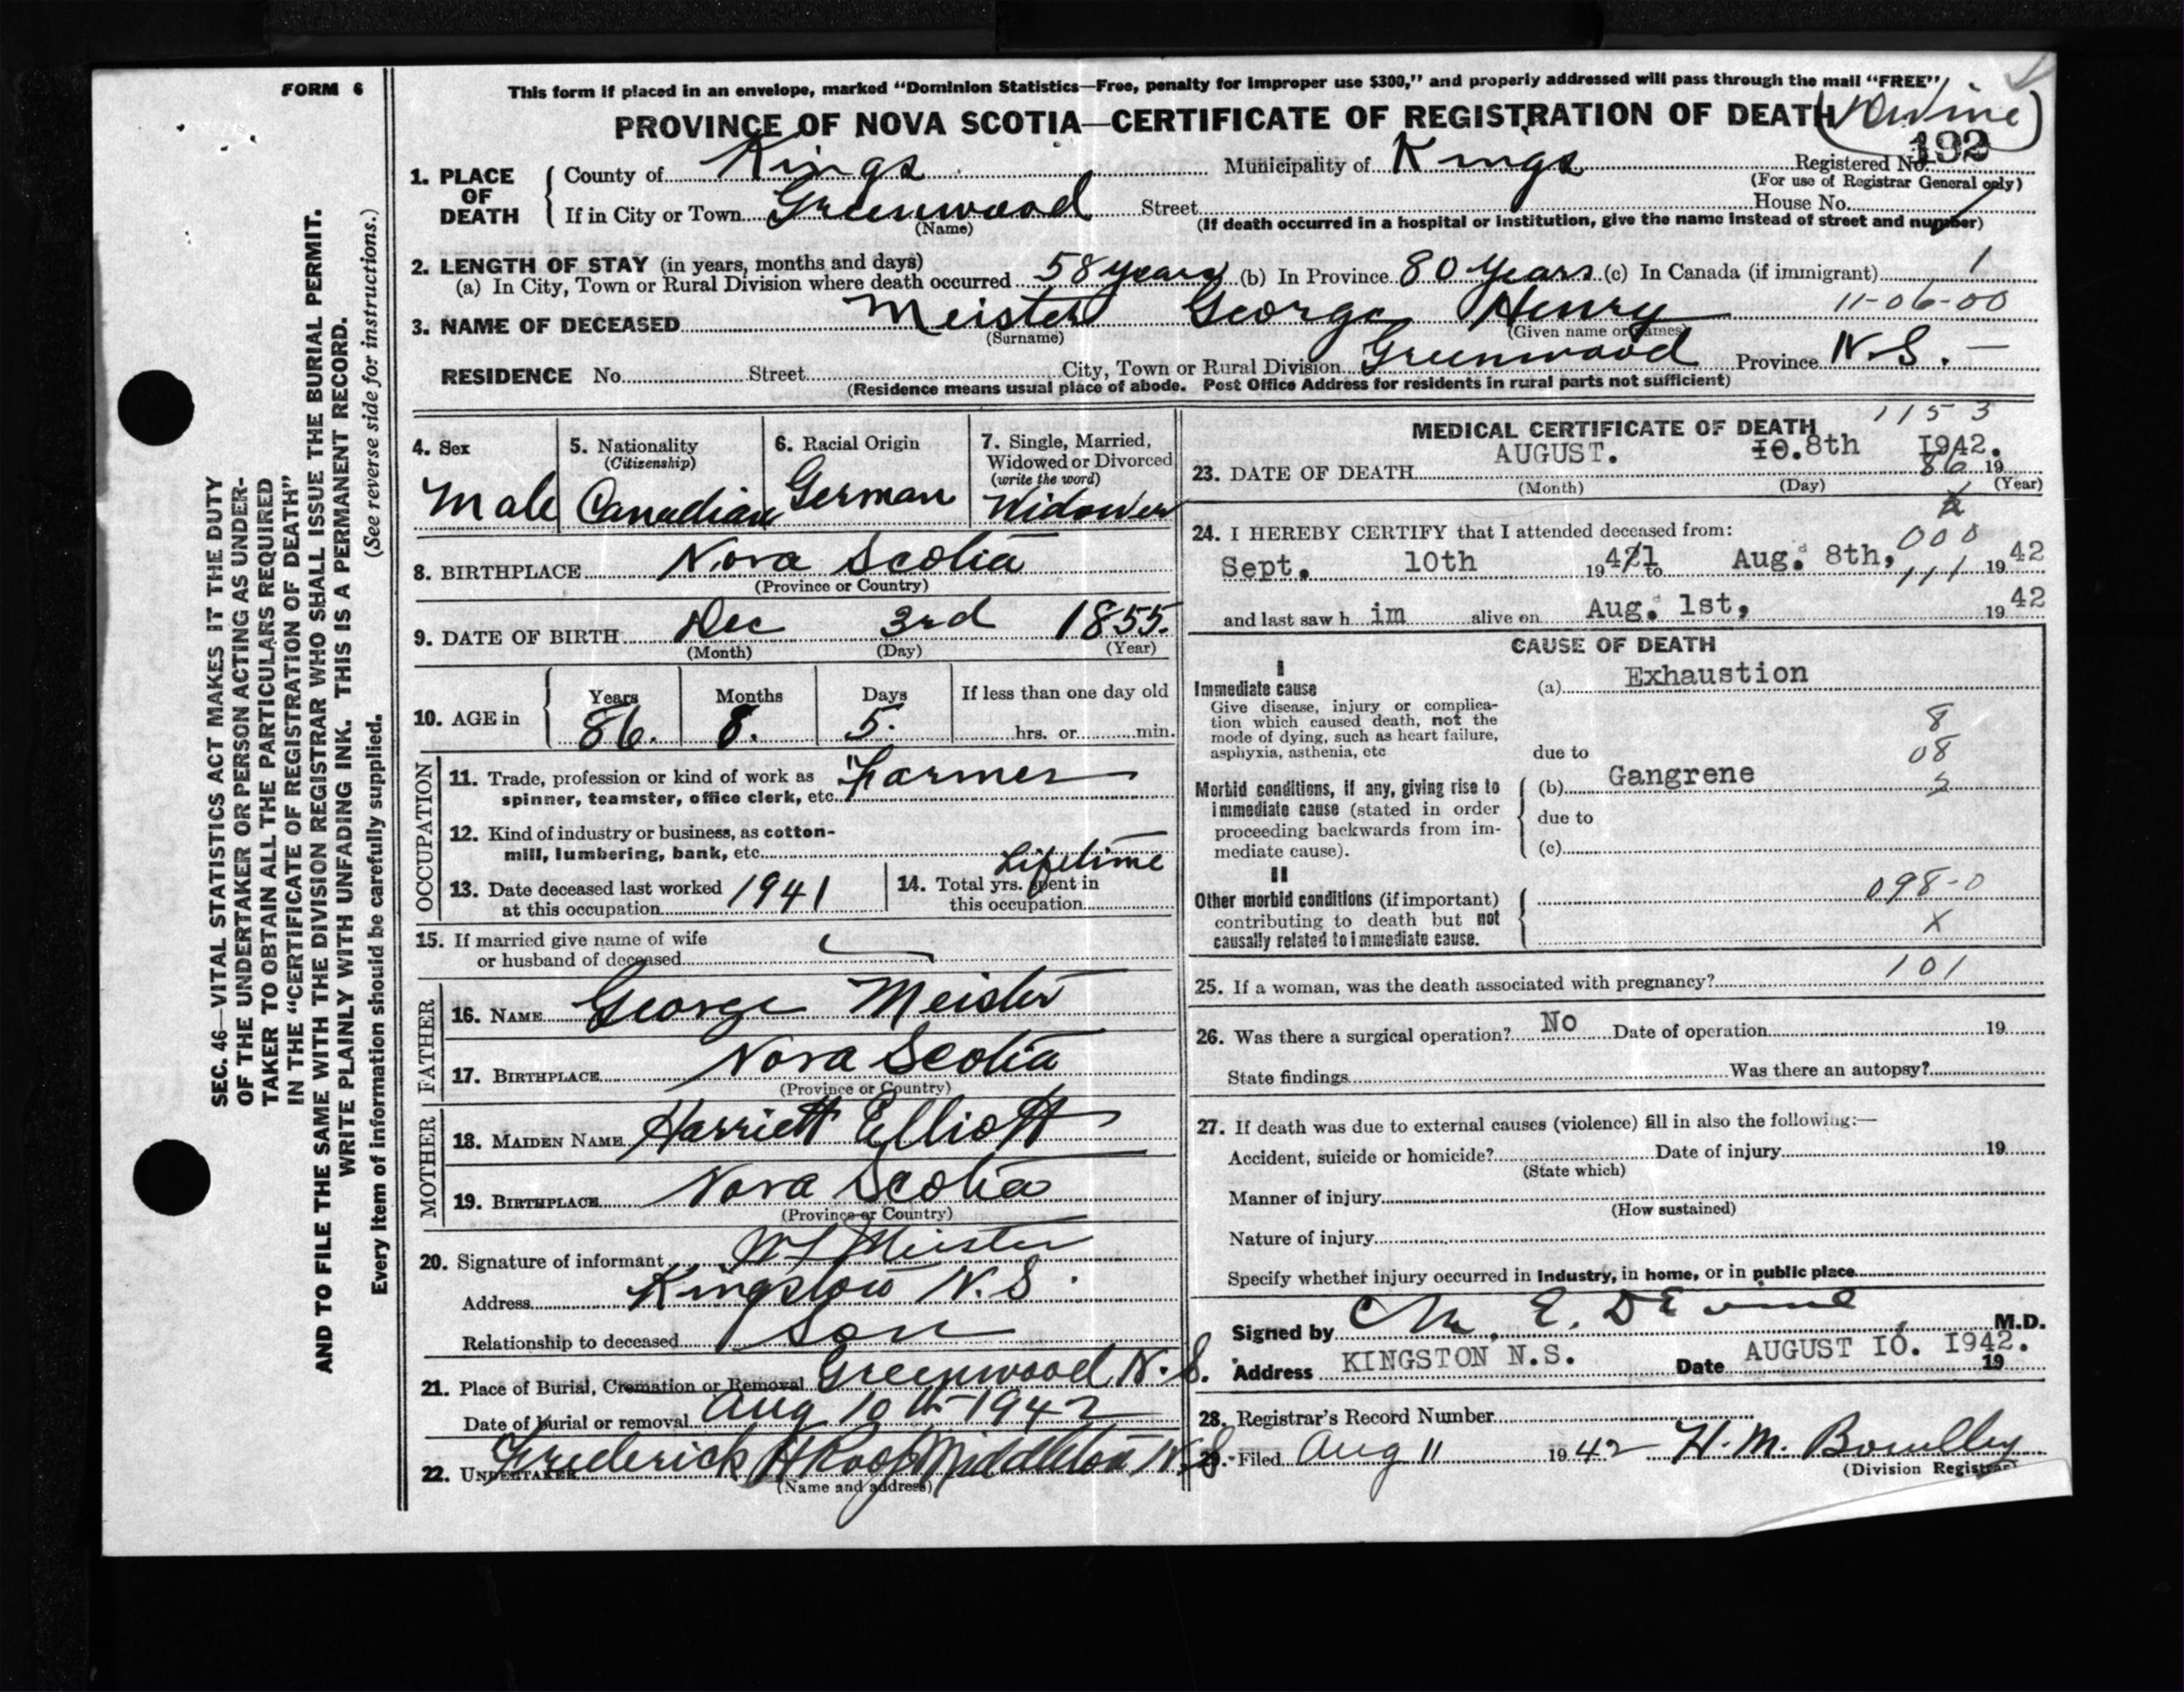 FORM 6
This form if placed in an envelope, marked "Dominion Statistics—Free, penalty for improper use $300," and properly addressed will pass through the mail "FREE"
PROVINCE OF NOVA SCOTIA—CERTIFICATE OF REGISTRATION OF DEATH
1. PLACE OF DEATH
County of Kings Municipality of Kings Registered No. 192
(For use of Registrar General only)
If in City or Town Greenwood Street House No.
(Name) (If death occurred in a hospital or institution, give the name instead of street and number)
2. LENGTH OF STAY (in years, months and days)
(a) In City, Town or Rural Division where death occurred 58 years (b) In Province 80 Years (c) In Canada (if immigrant) 1
3. NAME OF DECEASED Meister George Henry 11-06-00
(Surname) (Given name or names)
RESIDENCE No. Street City, Town or Rural Division Greenwood Province N.S. —
(Residence means usual place of abode. Post Office Address for residents in rural parts not sufficient)
4. Sex
Male
5. Nationality
(Citizenship)
Canadian
6. Racial Origin
German
7. Single, Married,
Widowed or Divorced
(write the word)
Widower
8. BIRTHPLACE Nova Scotia
(Province or Country)
9. DATE OF BIRTH Dec 3rd 1855.
(Month) (Day) (Year)
10. AGE in
Years Months Days If less than one day old
86. 8. 5. hrs. or min.
OCCUPATION
11. Trade, profession or kind of work as
spinner, teamster, office clerk, etc. Farmer
12. Kind of industry or business, as cotton-
mill, lumbering, bank, etc.
13. Date deceased last worked
at this occupation 1941
14. Total yrs. spent in
this occupation Lifetime
15. If married give name of wife
or husband of deceased
FATHER
16. NAME George Meister
17. BIRTHPLACE Nova Scotia
(Province or Country)
MOTHER
18. MAIDEN NAME Harriett Elliott
19. BIRTHPLACE Nova Scotia
(Province or Country)
20. Signature of informant Meister
Address Kingston N.S.
Relationship to deceased Son
21. Place of Burial, Cremation or Removal Greenwood N.S.
Date of burial or removal Aug 10th 1942
22. UNDERTAKER Frederick H Roop Middleton N.S
(Name and address)
1153
MEDICAL CERTIFICATE OF DEATH
AUGUST. 10. 8th 1942.
23. DATE OF DEATH 86 19
(Month) (Day) (Year)
24. I HEREBY CERTIFY that I attended deceased from:
000
Sept. 10th 1941 to Aug. 8th, 1942
111
and last saw h im alive on Aug. 1st, 1942
CAUSE OF DEATH
I
Immediate cause
Give disease, injury or complica-
tion which caused death, not the
mode of dying, such as heart failure,
asphyxia, asthenia, etc
(a) Exhaustion
8
due to 08
Morbid conditions, if any, giving rise to
immediate cause (stated in order
proceeding backwards from im-
mediate cause).
(b) Gangrene
due to
(c)
II
Other morbid conditions (if important)
contributing to death but not
causally related to immediate cause.
098-0
X
101
25. If a woman, was the death associated with pregnancy?
26. Was there a surgical operation? No Date of operation 19
State findings Was there an autopsy?
27. If death was due to external causes (violence) fill in also the following:—
Accident, suicide or homicide? Date of injury 19
(State which)
Manner of injury
(How sustained)
Nature of injury
Specify whether injury occurred in industry, in home, or in public place
Signed by M. E. DEvine M.D.
Address KINGSTON N.S. Date AUGUST 10. 1942. 19
28. Registrar's Record Number
29. Filed Aug 11 1942 H. M.
(Division Registrar)
SEC. 46—VITAL STATISTICS ACT MAKES IT THE DUTY
OF THE UNDERTAKER OR PERSON ACTING AS UNDER-
TAKER TO OBTAIN ALL THE PARTICULARS REQUIRED
IN THE "CERTIFICATE OF REGISTRATION OF DEATH"
AND TO FILE THE SAME WITH THE DIVISION REGISTRAR WHO SHALL ISSUE THE BURIAL PERMIT.
WRITE PLAINLY WITH UNFADING INK. THIS IS A PERMANENT RECORD.
Every item of information should be carefully supplied. (See reverse side for instructions.)